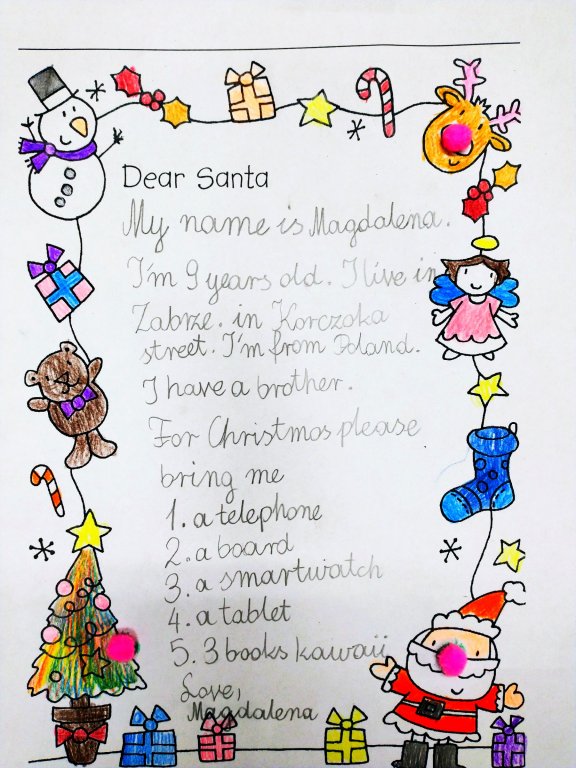 Dear Santa
My name is Magdalena.
I'm 9 years old. I live in
Zabrze. in Korczoka
street. I'm from Poland.
I have a brother.
For Christmas please
bring me
1. a telephone
2. a board
3. a smartwatch
4. a tablet
5. 3 books kawaii
Love,
Magdalena